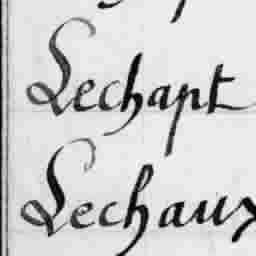 Lechapt
Lechaux